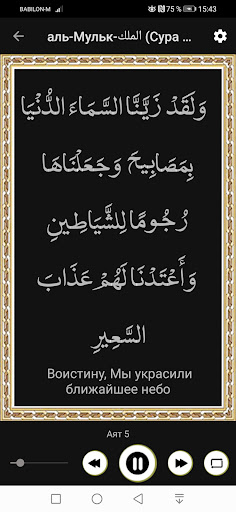 BABILON-M 75 % 15:43
аль-Мульк-الملك (Сура ...
وَلَقَدْ زَيَّنَّا السَّمَاءَ الدُّنْيَا
بِمَصَابِيحَ وَجَعَلْنَاهَا
رُجُومًا لِلشَّيَاطِينِ
وَأَعْتَدْنَا لَهُمْ عَذَابَ
السَّعِيرِ
Воистину, Мы украсили
ближайшее небо
Аят 5